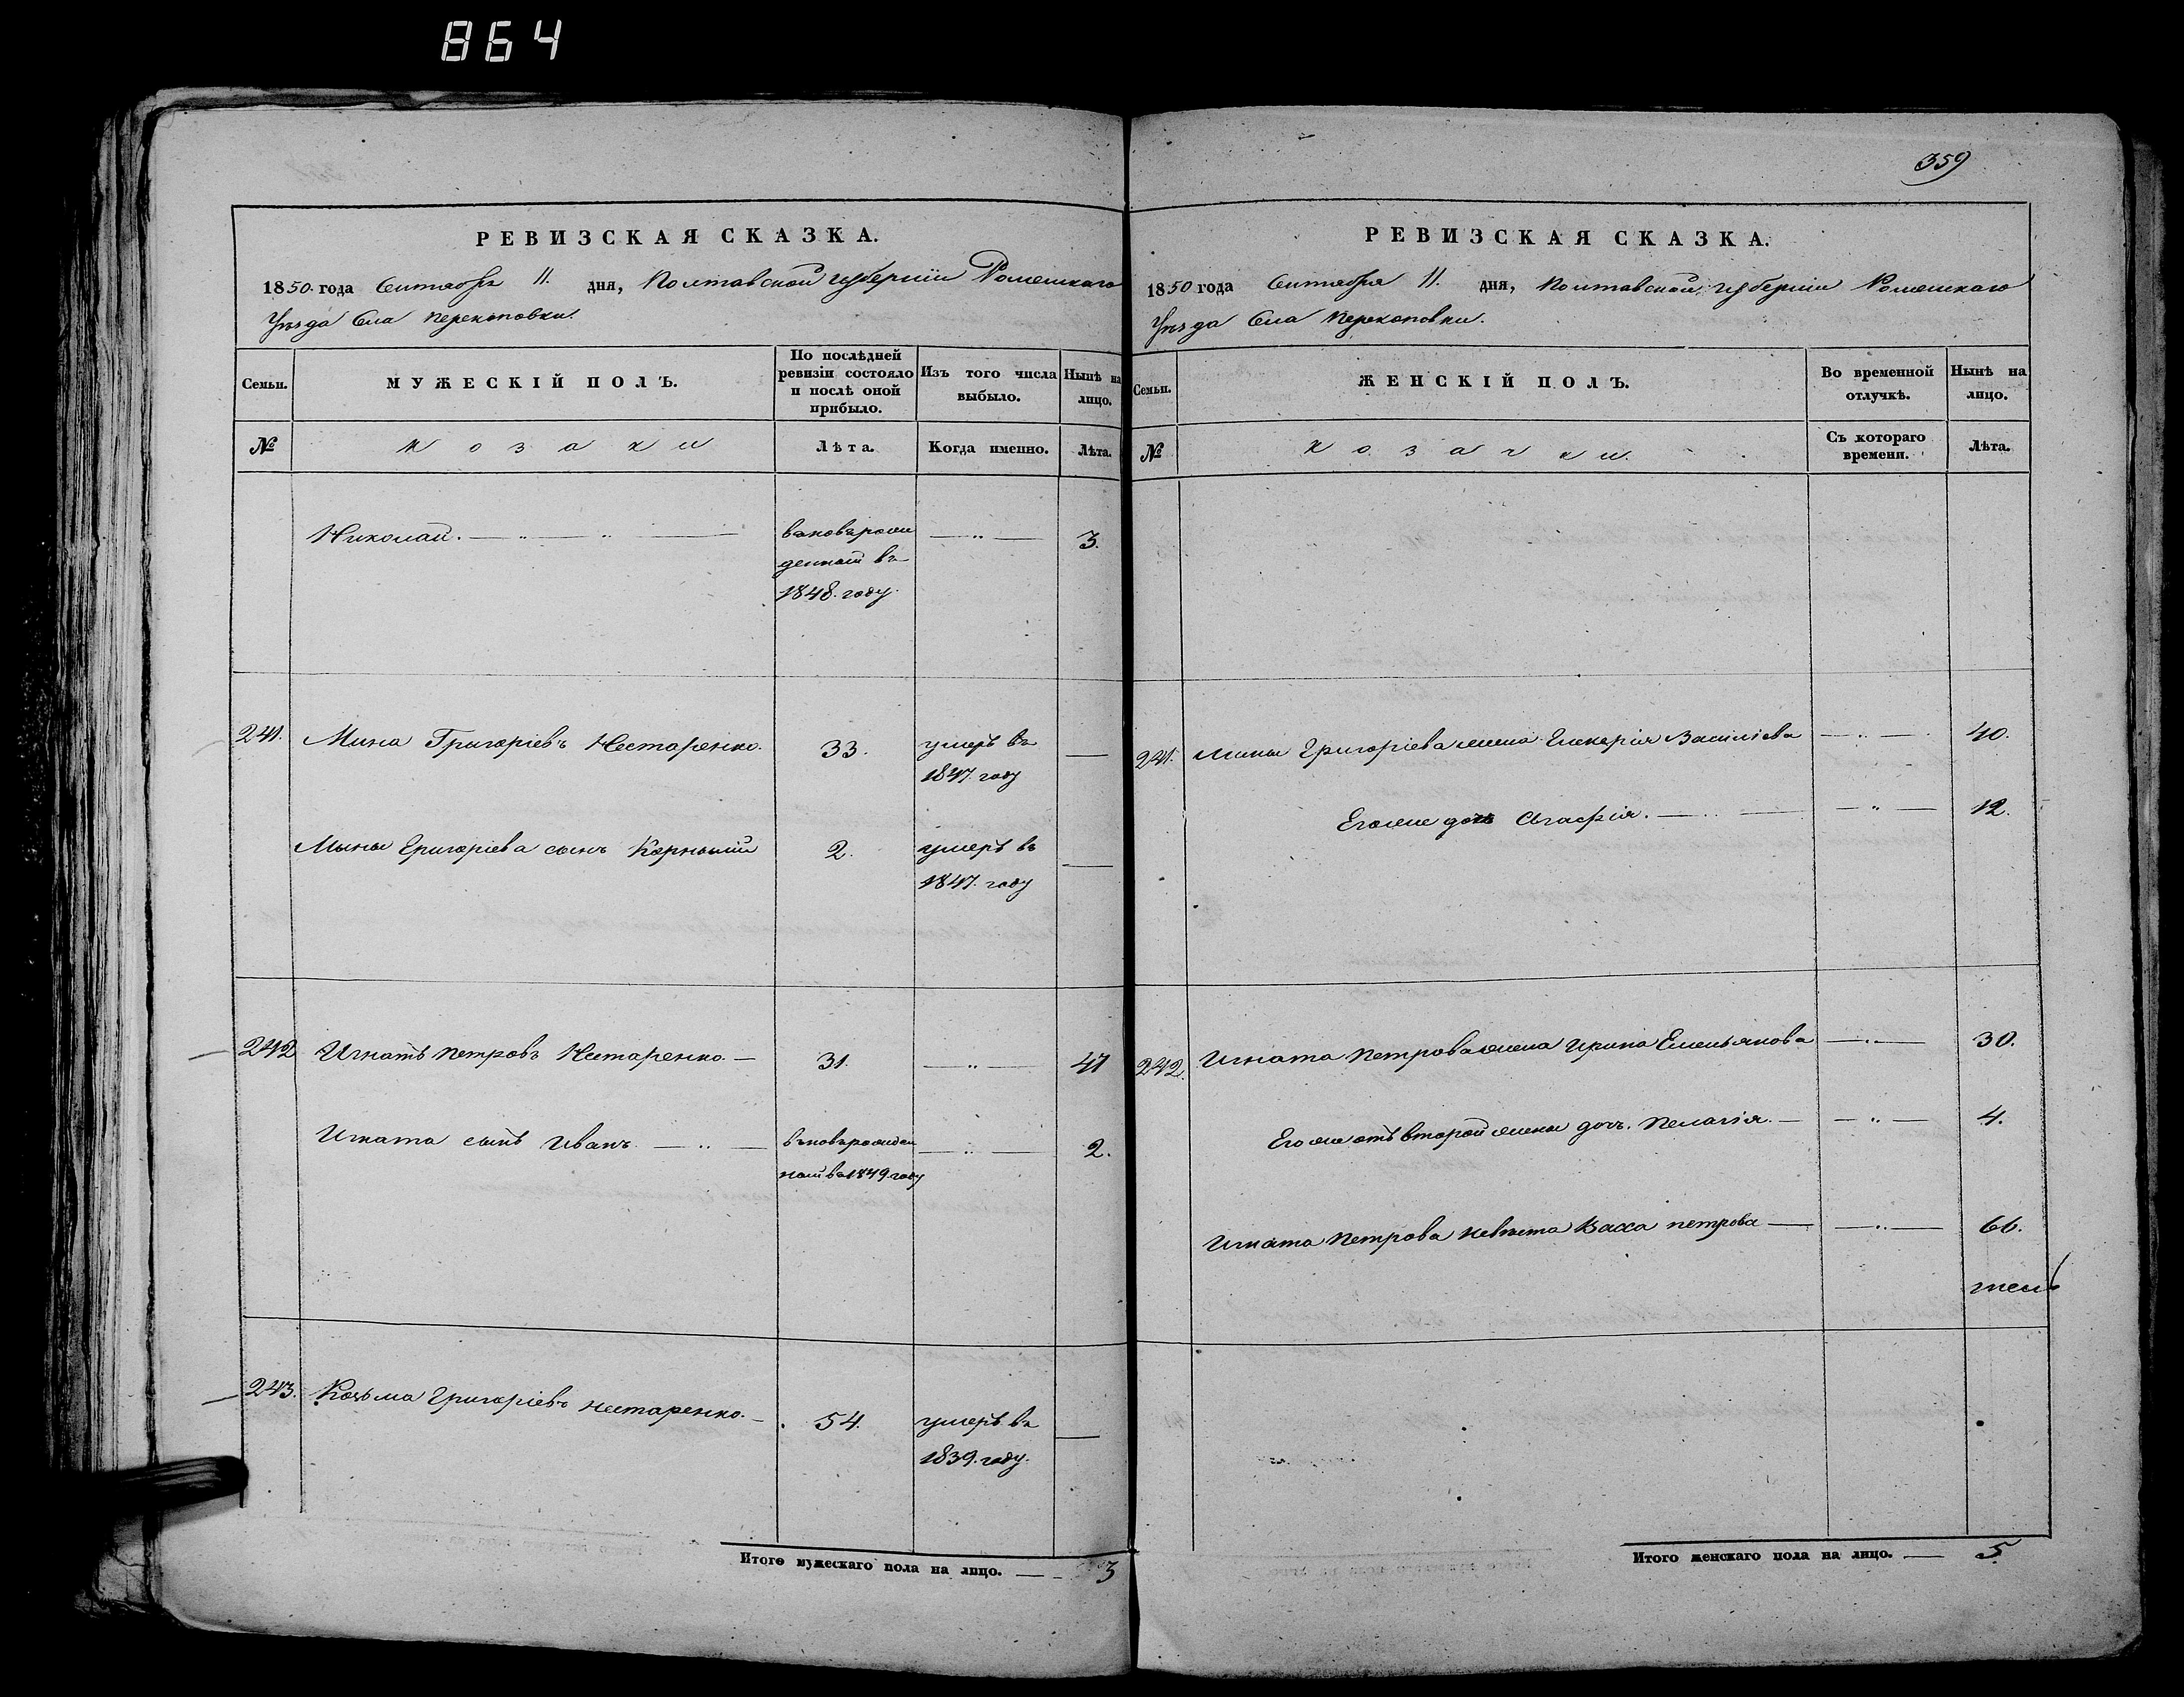 864
РЕВИЗСКАЯ СКАЗКА.
1850. года Сентября 11. дня, Полтавской губерніи Роменскаго
Уѣзда Села Перекоповки.
Семьи.
МУЖЕСКІЙ ПОЛЪ.
По послѣдней
ревизіи состояло
и послѣ оной
прибыло.
Изъ того числа
выбыло.
Нынѣ на
лицо.
№
Козаки
Лѣта.
Когда именно.
Лѣта.
Николай. — „ — „ —
вновьрож
денный въ
1848. году.
— „ —
3.
241. Мина Григоріевъ Нестаренко. 33. умеръ въ —
1847. году
Мины Григоріева сынъ Корнилий 2. умеръ въ —
1847. году
242 Игнатъ Петровъ Нестаренко. — 31. — „ — 47
Игната сынъ Иванъ. — „ — вновьрожден — „ — 2.
ный въ 1849. году
243. Козьма Григоріевъ Нестаренко. — 54. умеръ въ —
1839. году.
Итого мужескаго пола на лицо. — 3
359
РЕВИЗСКАЯ СКАЗКА.
1850 года Сентября 11. дня, Полтавской губерніи Роменскаго
Уѣзда Села Перекоповки.
Семьи.
ЖЕНСКІЙ ПОЛЪ.
Во временной
отлучкѣ.
Нынѣ на
лицо.
№
Козачки.
Съ котораго
времени.
Лѣта.
241. Мины Григоріева жена Гликерія Василіева — „ — 40.
Егоже дочь Агафія. — „ — — „ — 12.
242. Игната Петрова жена Ирина Емельянова — „ — 30.
Егоже отъ второй жены дочь Пелагія. — — „ — 4.
Игната Петрова невѣста Васса Петрова — — „ — 66.
Итого женскаго пола на лицо. — 5.